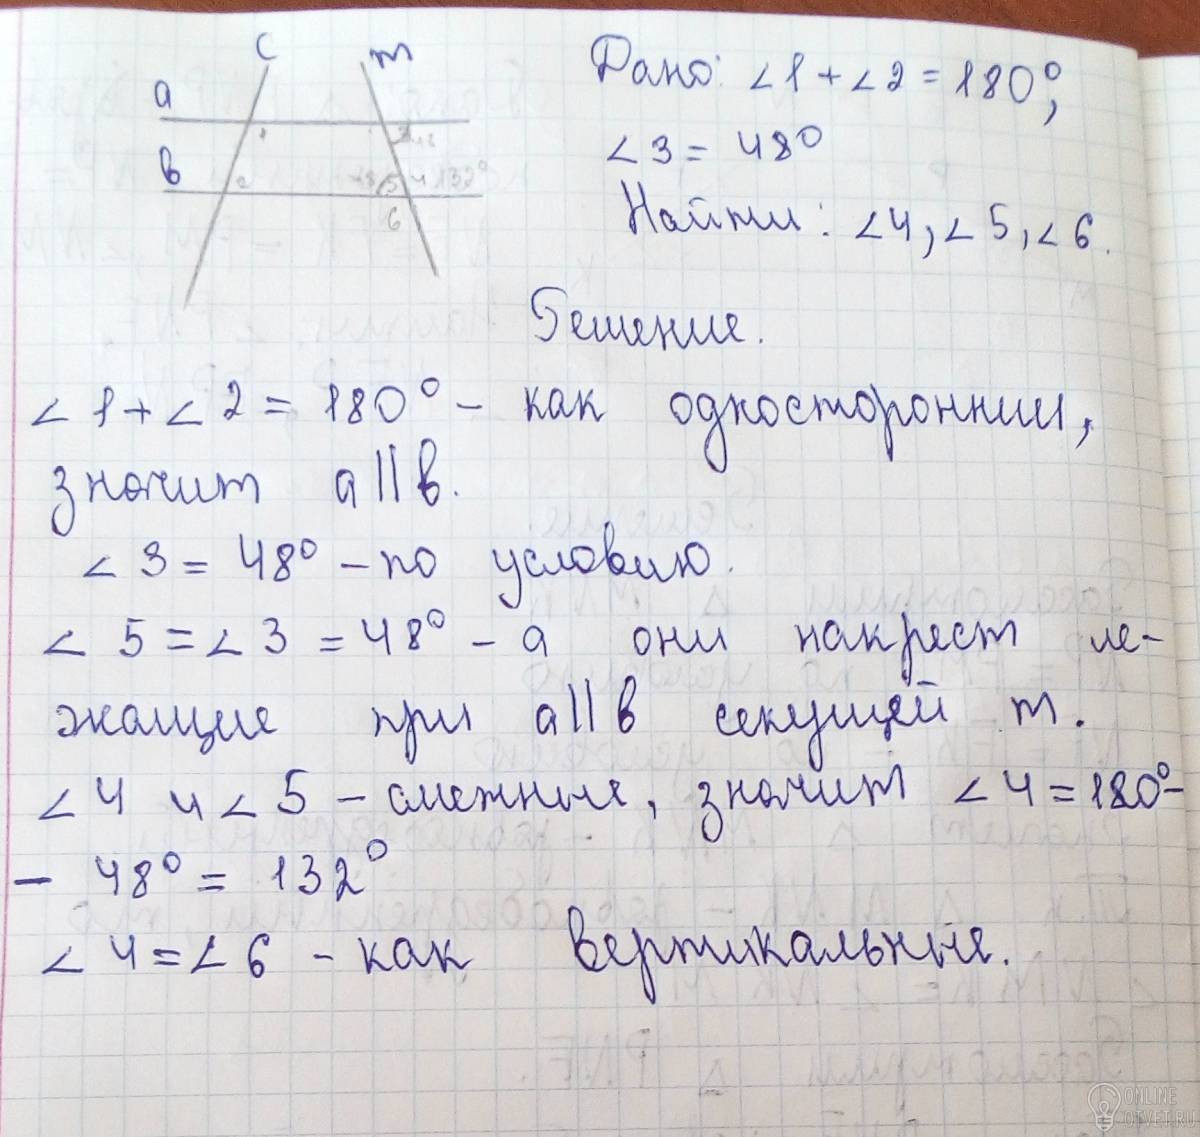 c m
a
1 3 48
в
2 48 5 4 132°
6
Дано: ∠1 + ∠2 = 180°;
∠3 = 48°
Найти: ∠4, ∠5, ∠6.
Решение.
∠1 + ∠2 = 180° – как односторонние,
значит a || в.
∠3 = 48° – по условию.
∠5 = ∠3 = 48° – а они накрест ле-
жащие при a || в секущей m.
∠4 и ∠5 – смежные, значит ∠4 = 180° –
– 48° = 132°
∠4 = ∠6 – как вертикальные.
ONLINE
OTVET.RU